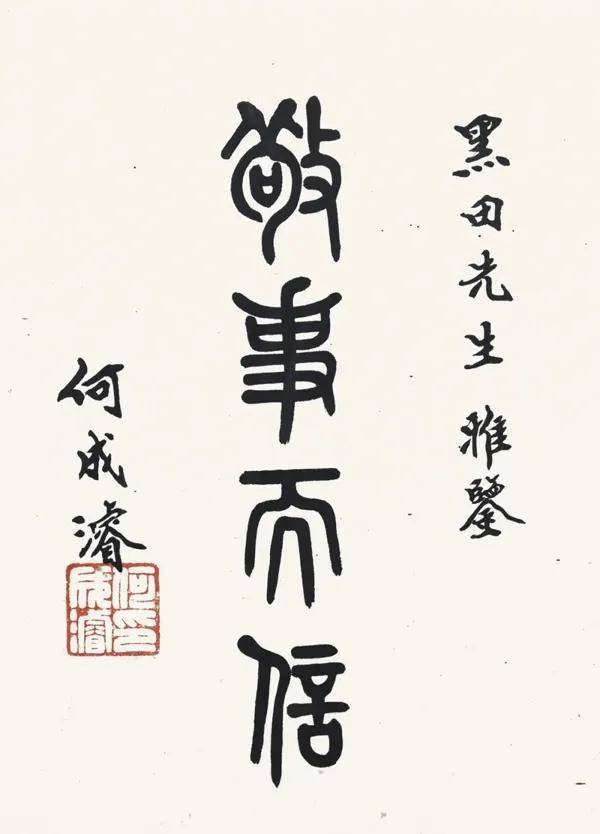 黑田先生 雅鑒
敬事而信
何成濬
何成濬印